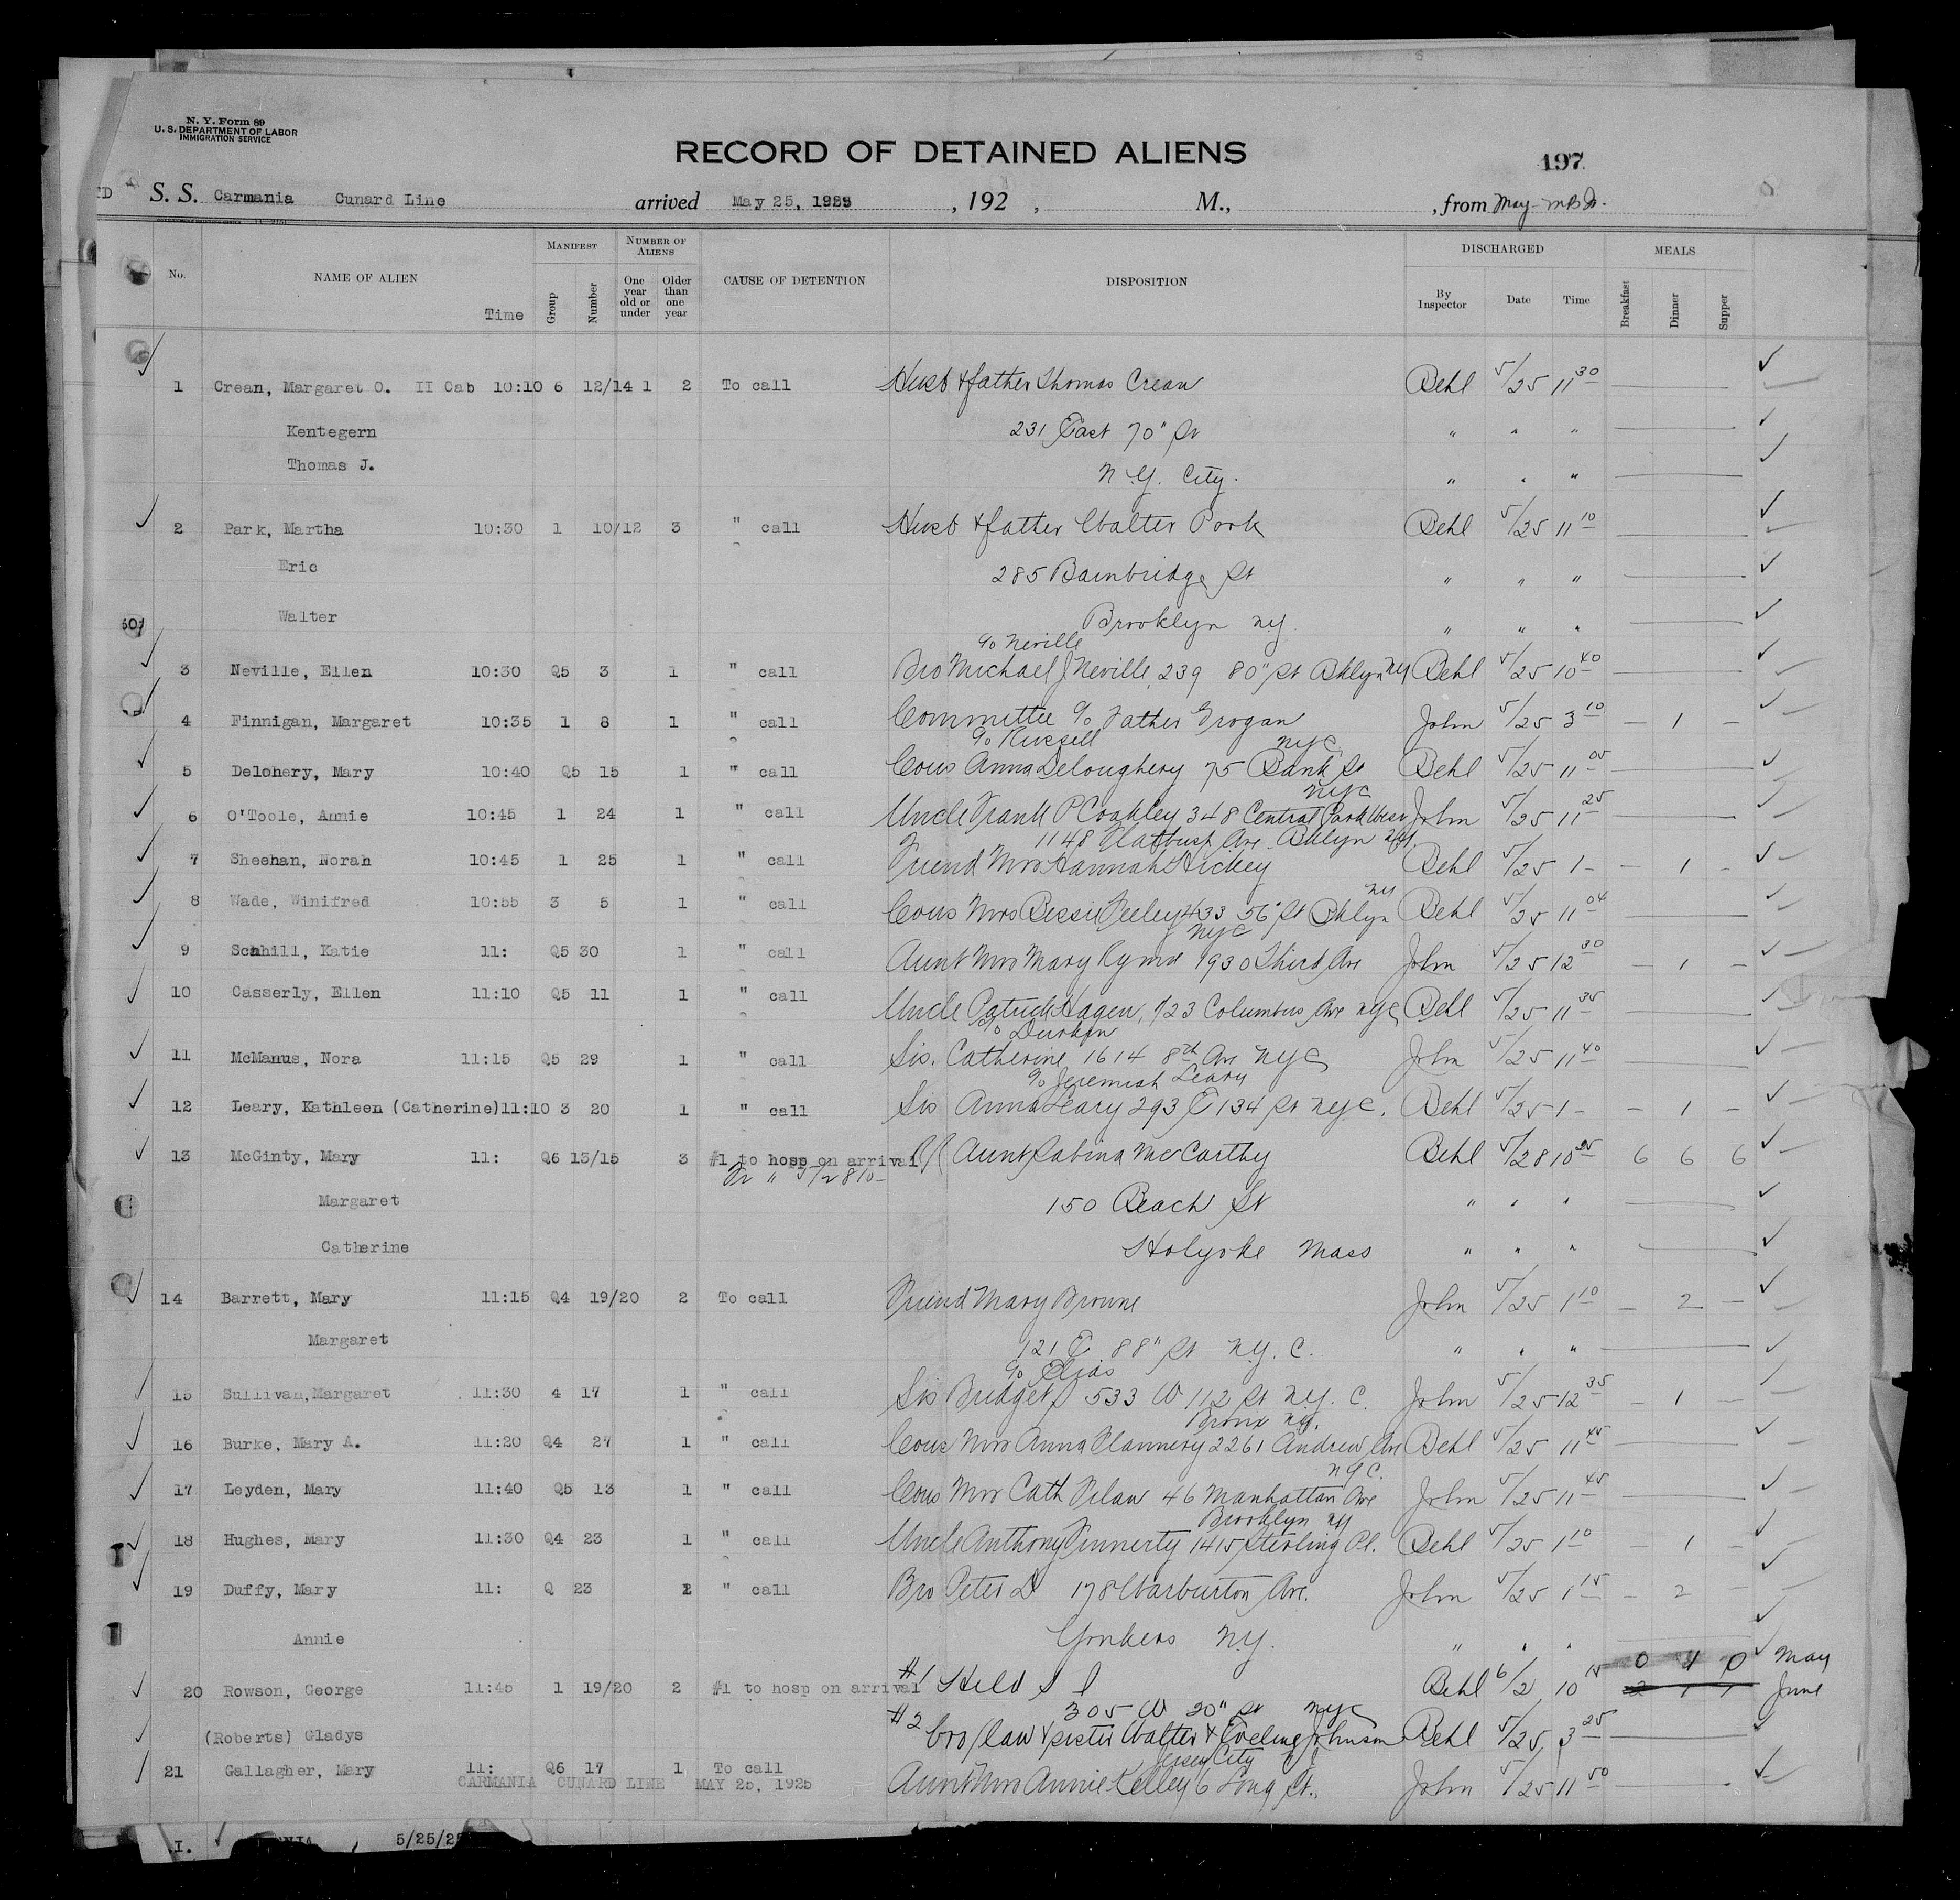 N. Y. Form 89
U. S. DEPARTMENT OF LABOR
IMMIGRATION SERVICE
RECORD OF DETAINED ALIENS
197
S. S. Carmania Cunard Line arrived May 25, , 192 , M., , from
No. NAME OF ALIEN Time MANIFEST Group Number NUMBER OF ALIENS One year old or under Older than one year CAUSE OF DETENTION DISPOSITION DISCHARGED By Inspector Date Time MEALS Breakfast Dinner Supper
1 Crean, Margaret O. II Cab 10:10 6 12/14 1 2 To call Husb & father Thomas Crean Behl 5/25 11 30
Kentegern 231 East 70" St " " "
Thomas J. N.Y. City. " " "
2 Park, Martha 10:30 1 10/12 3 " call Husb & father Walter Park Behl 5/25 11 10
Eric 285 Bainbridge St " " "
Walter Brooklyn N.Y. " " "
c/o Neville
3 Neville, Ellen 10:30 Q5 3 1 " call Bro Michael J Neville, 239 80" St Bklyn NY Behl 5/25 10 40
4 Finnigan, Margaret 10:35 1 8 1 " call Committee c/o Father Grogan John 5/25 3 10 – 1 –
c/o Russell NYC
5 Delohery, Mary 10:40 Q5 15 1 " call Cous Anna Deloughery 75 Bank St Behl 5/25 11 05
NYC
6 O'Toole, Annie 10:45 1 24 1 " call Uncle Frank P Coakley 348 Central Park West John 5/25 11 25
1148 Flatbush Ave Bklyn NY.
7 Sheehan, Norah 10:45 1 25 1 " call Friend Mrs Hannah Hickey Behl 5/25 1– – 1 –
NY
8 Wade, Winifred 10:55 3 5 1 " call Cous Mrs Bessie Feeley 433 56" St Bklyn Behl 5/25 11 04
NYC
9 Scahill, Katie 11: Q5 30 1 " call Aunt Mrs Mary 1930 Third Ave John 5/25 12 30 – 1 –
10 Casserly, Ellen 11:10 Q5 11 1 " call Uncle Patrick Hagen, 723 Columbus Ave NYC Behl 5/25 11 35
c/o Durkin
11 McManus, Nora 11:15 Q5 29 1 " call Sis. Catherine 1614 8th Ave NYC John 5/25 11 40
c/o Jeremiah Leary
12 Leary, Kathleen (Catherine) 11:10 3 20 1 " call Sis Anna Leary 293 E 134 St NYC. Behl 5/25 1– – 1 –
13 McGinty, Mary 11: Q6 13/15 3 #1 to hosp on arrival Aunt Sabina McCarthy Behl 5/28 10 6 6 6
Fr " 5/28 10–
Margaret 150 Beach St " " "
Catherine Holyoke Mass " " "
14 Barrett, Mary 11:15 Q4 19/20 2 To call Friend Mary Browne John 5/25 1 10 – 2 –
Margaret 121 E 88" St N.Y. C. " " "
c/o Elias
15 Sullivan, Margaret 11:30 4 17 1 " call Sis Bridget 533 W 112 St N.Y. C. John 5/25 12 35 – 1 –
Bronx NY.
16 Burke, Mary A. 11:20 Q4 27 1 " call Cous Mrs Anna Flannery 2261 Andrew Ave Behl 5/25 11 45
NYC.
17 Leyden, Mary 11:40 Q5 13 1 " call Cous Mrs Cath 46 Manhattan Ave John 5/25 11 45
Brooklyn NY
18 Hughes, Mary 11:30 Q4 23 1 " call Uncle Anthony Finnerty 1415 Sterling Pl. Behl 5/25 1 10 – 1 –
19 Duffy, Mary 11: Q 23 2 " call Bro Peter D 178 Warburton Ave. John 5/25 1 15 – 2 –
Annie Yonkers N.Y. " " "
0 1 0 May
20 Rowson, George 11:45 1 19/20 2 #1 to hosp on arrival #1 Held S I Behl 6/2 10 15 June
305 W 20" St NYC
(Roberts) Gladys #2 bro/law & sister Walter & Eveline Johnson Behl 5/25 3 25
Jersey City
21 Gallagher, Mary 11: Q6 17 1 To call Aunt Mrs Annie Kelley 6 Long St. John 5/25 11 50
CARMANIA CUNARD LINE MAY 25, 1925
5/25/25